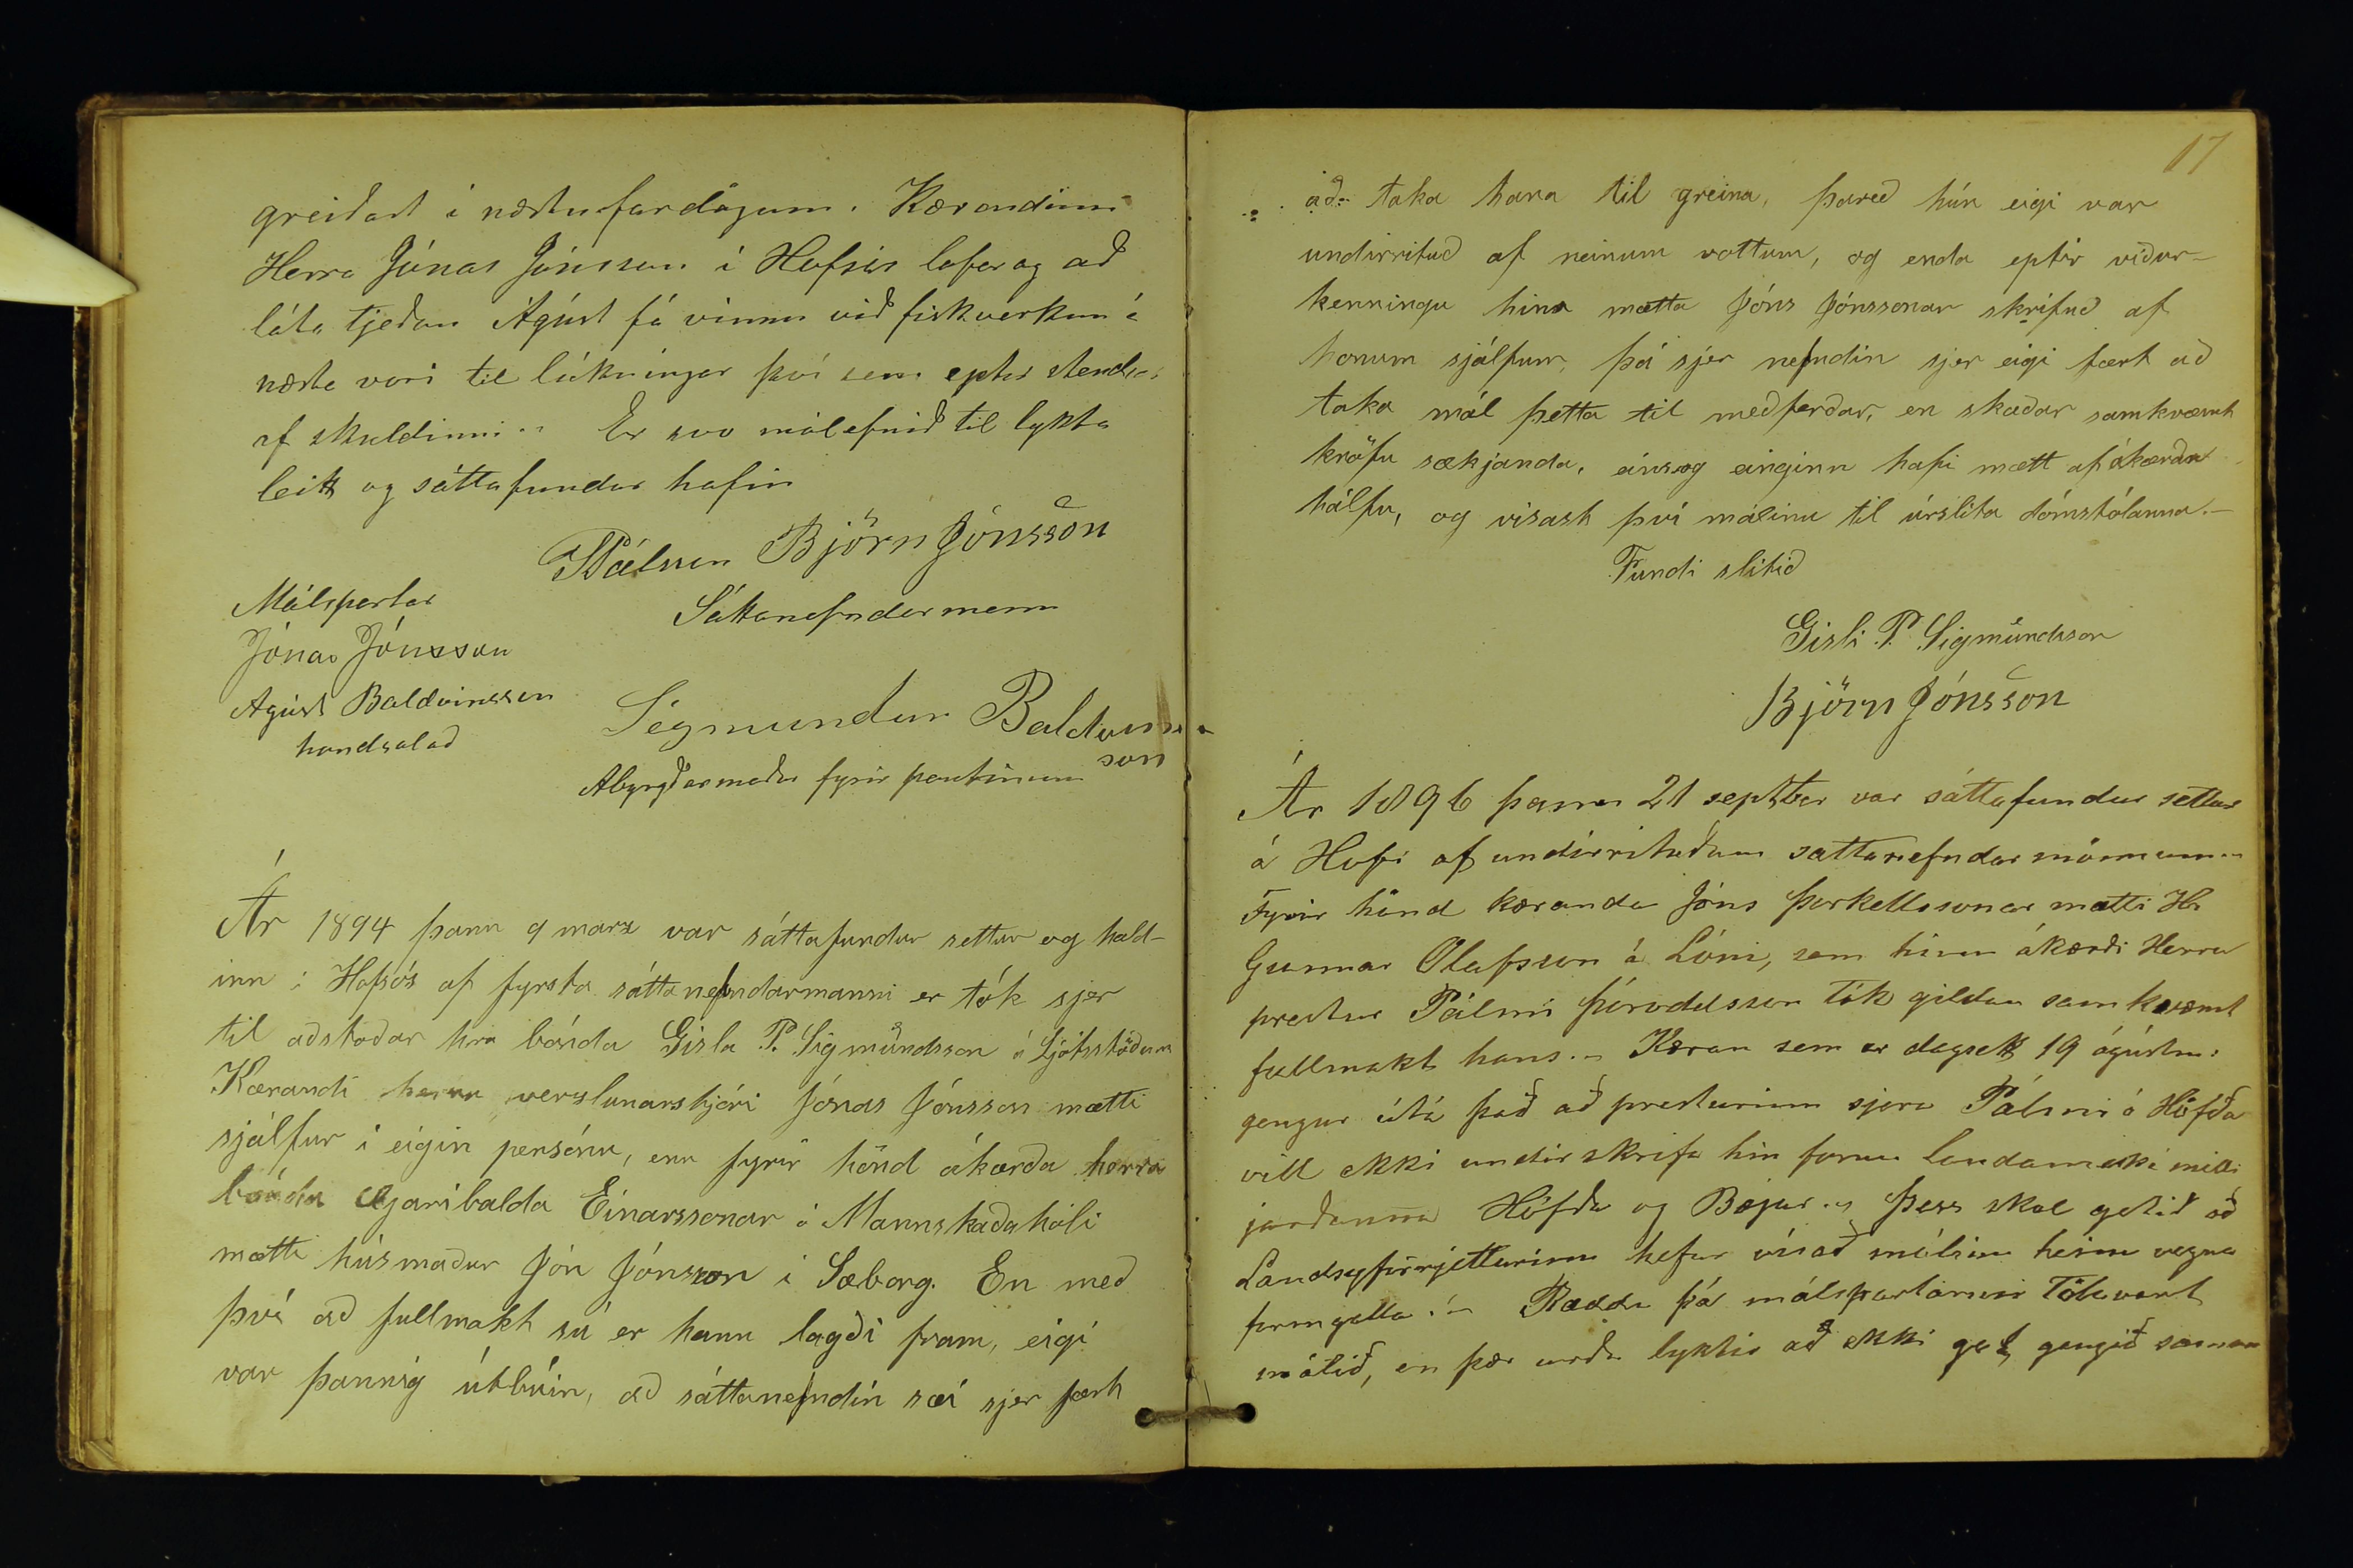 greiðast í næstu fardögum. Kærandinn
Herra Jónas Jónsson í Hofsós lofar og að
láta tjeðan Ágúst fá vinnu við fiskverkun á
næsta vori til lúkníngar því sem eptir stendur
af skuldinni.. Er svo málefnið til lykta
leitt og sáttafundur hafin
TPálsson Björn Jónsson
Sáttanefndarmenn
Málspartar
Jónas Jónsson
Agúst Baldvinsson
handsalað
Sigmundur Baldvins
son
Abyrgðarmaður fyrir pentínum
Ár 1894 þann 9 marz var sáttafundur settur og hald-
inn í Hofsós af fyrsta sáttanefndarmanni er tók sjer
til aðstoðar hra bónda Gísla P. Sigmundsson á Ljótsstöðum
Kærandi herra verzlunarstjóri Jónas Jónsson mætti
sjálfur í eigin persónu, enn fyrir hönd ákærða herra
bónda Garibalda Einarssonar á Mannskaðahóli
mætti húsmaður Jón Jónsson í Sæborg. En með
því að fullmakt sú er hann lagði fram, eigi
var þannig útbúin, að sáttanefndin sæi sjer fært
17
að taka hana til greina, þareð hún eigi var
undirrituð af neinum vottum, og enda eptir viður-
kenningu hins mætta Jóns Jónssonar skrifuð af
honum sjálfum, þá sjer nefndin sjer eigi fært að
taka mál þetta til meðferðar, en skaðar samkvæmt
kröfu sækjanda, einsog einginn hafi mætt af ákærða
hálfu, og vísast því málinu til úrslita dómstólanna.-
Fundi slitið
Gisli P. Sigmundsson
Björn Jónsson
Ár 1896 þann 21 septber var sáttafundur settur
á Hofi af undirrituðum sattanefndar mönnum..
Fyrir hönd kæranda Jóns Þorkellssonar mætti Hr
Gunnar Olafsson á Lóni, sem hinn ákærði Herra
prestur Pálmi Þóroddsson tók gildan samkvæmt
fullmakt hans.- Kæran sem er dagsett 19 ágústm.
gengur útá það að presturinn sjera Pálmi á Höfða
vill ekki undirskrifa hin fornu landamerki milli
jarðanna Höfða og Bæjar.. Þess skal getið að
Landsyfirrjetturinn hefur vísað málinu heim vegna
formgalla.- Ræddu þá málspartarnir töluvert
málið, en þær urðu lyktir að ekki gat gengið saman